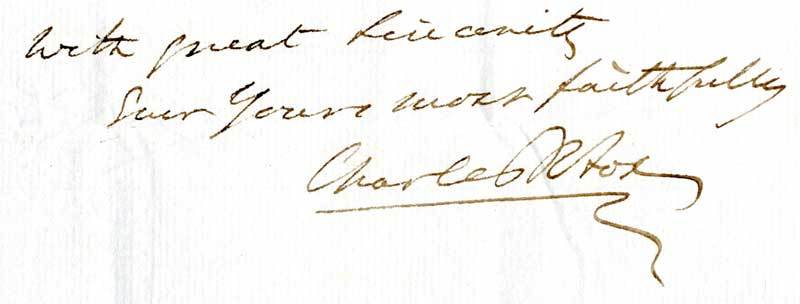 with great sincerity
Ever Yours most faithfully
Charles R Fox